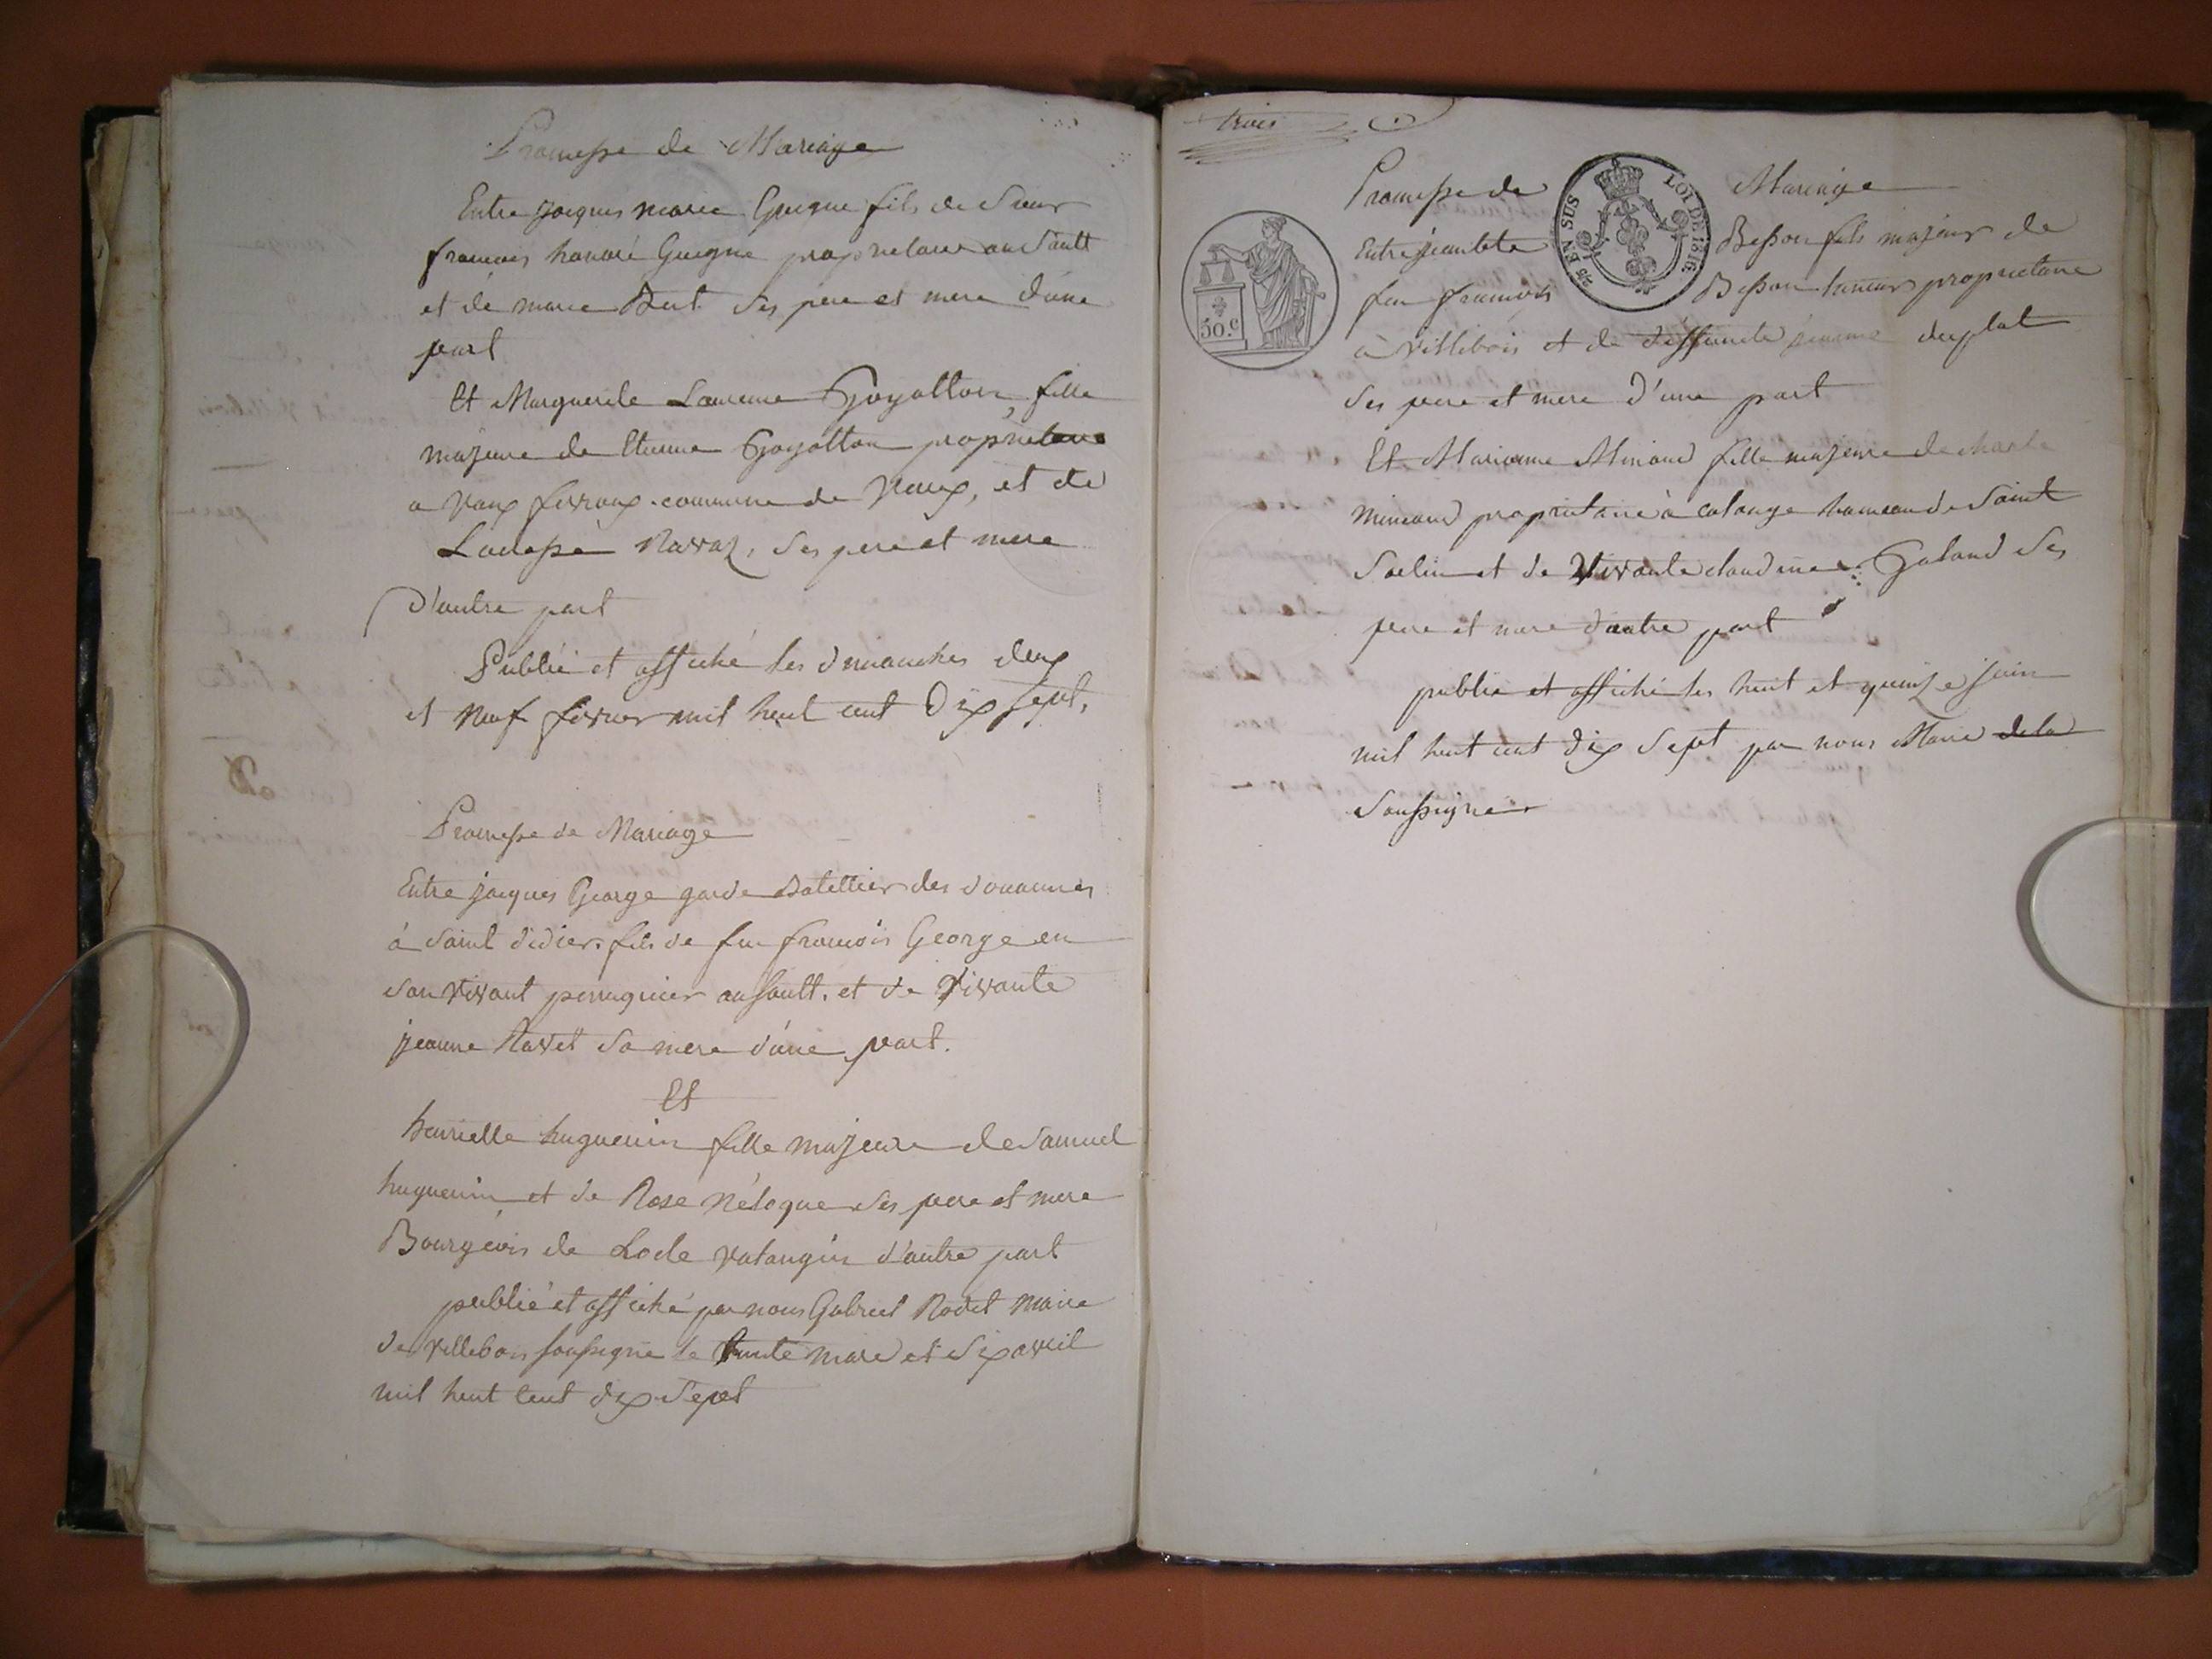 Promesse de Mariage
Entre jacques marie Guigue fils de Sieur
francois honoré Guigue proprietaire au Sault
et de marie Bert ses pere et mere d'une
part
Et Marguerite Laurence Goyatton, fille
majeure de Etienne Goyatton proprietaire
a Vaux fevroux commune de Vaux, et de
Ravaz, ses pere et mere
d'autre part
Publié et affiché les dimanches deux
et Neuf fevrier mil huit cent Dix sept,
Promesse de Mariage
Entre jacques George garde Batellier des douannes
à Saint didier fils de feu francois George en
son vivant perruquier au Sault, et de Vivante
jeanne Ravet sa mere d'une part.
Et
henriette huguenin fille majeure de Samuel
huguenin et de Rose ses pere et mere
Bourgeois de Locle valangin d'autre part
publié et affiché par nous Gabriel Rodet Maire
de villebois soussigné le trente mars et Six avril
mil huit cent dix Sept
trois
Promesse de Mariage
Entre jean bte Besson fils majeur de
feu francois Besson tanneur proprietaire
à Villebois et de deffunte jeanne duplat
Ses pere et mere D'une part
Et Marianne Minaud fille majeure de charle
minaud proprietaire à calonge hameau de Saint
Sorlin et de Vivante claudine Galand Ses
pere et mere d'autre part
publié et affiché les huit et quinze juin
mil huit cent dix Sept par nous Maire de la
Soussigné
50.c
EN SUS
LOI DE 1816